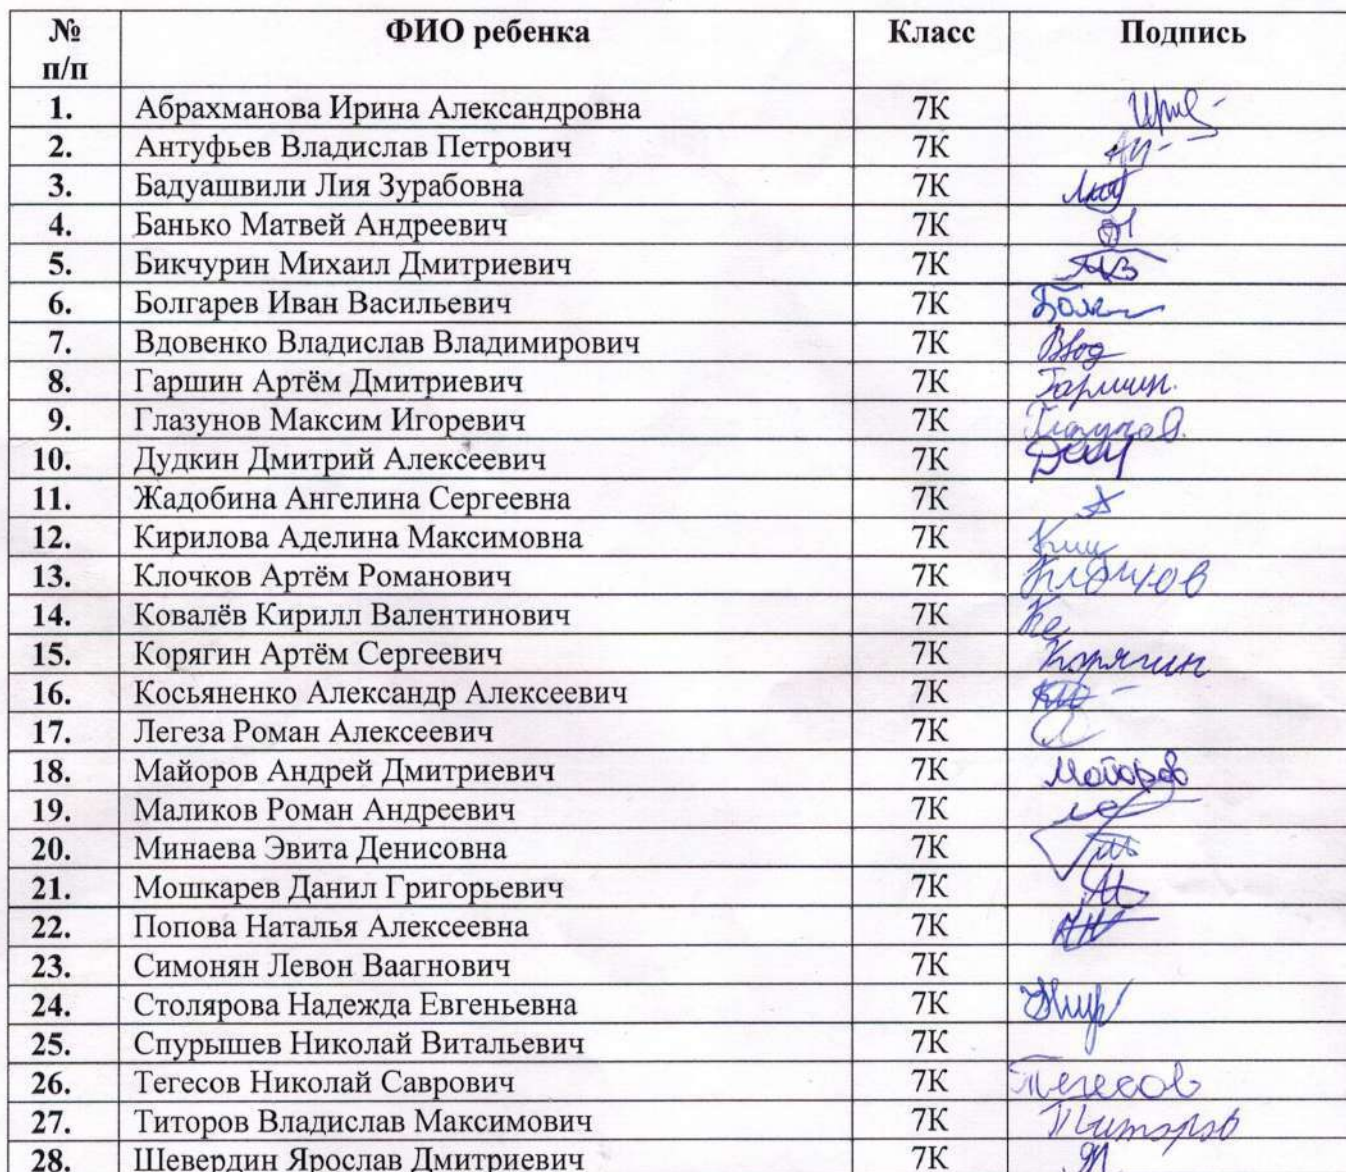 № п/п ФИО ребенка Класс Подпись
1. Абрахманова Ирина Александровна 7К
2. Антуфьев Владислав Петрович 7К
3. Бадуашвили Лия Зурабовна 7К
4. Банько Матвей Андреевич 7К
5. Бикчурин Михаил Дмитриевич 7К
6. Болгарев Иван Васильевич 7К
7. Вдовенко Владислав Владимирович 7К
8. Гаршин Артём Дмитриевич 7К Гаршин.
9. Глазунов Максим Игоревич 7К
10. Дудкин Дмитрий Алексеевич 7К
11. Жадобина Ангелина Сергеевна 7К
12. Кирилова Аделина Максимовна 7К
13. Клочков Артём Романович 7К
14. Ковалёв Кирилл Валентинович 7К
15. Корягин Артём Сергеевич 7К Корягин
16. Косьяненко Александр Алексеевич 7К
17. Легеза Роман Алексеевич 7К
18. Майоров Андрей Дмитриевич 7К Майоров
19. Маликов Роман Андреевич 7К
20. Минаева Эвита Денисовна 7К
21. Мошкарев Данил Григорьевич 7К
22. Попова Наталья Алексеевна 7К
23. Симонян Левон Ваагнович 7К
24. Столярова Надежда Евгеньевна 7К
25. Спурышев Николай Витальевич 7К
26. Тегесов Николай Саврович 7К Тегесов
27. Титоров Владислав Максимович 7К Титоров
28. Шевердин Ярослав Дмитриевич 7К